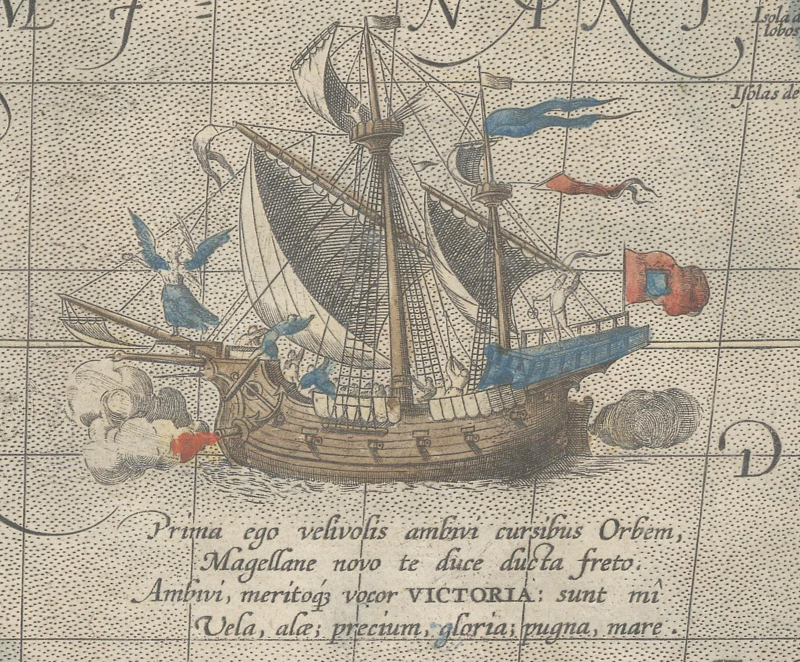 Isola d
lobos
Isolas de
D
Prima ego velivolis ambivi cursibus Orbem,
Magellane novo te duce ducta freto.
Ambivi, meritoqꝫ vocor VICTORIA: sunt mî
Vela, alæ; precium, gloria; pugna, mare.